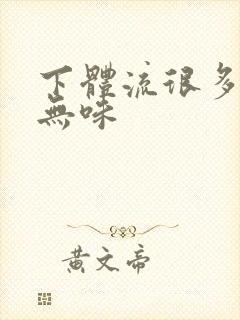 下體流很多
無味
黃文帝